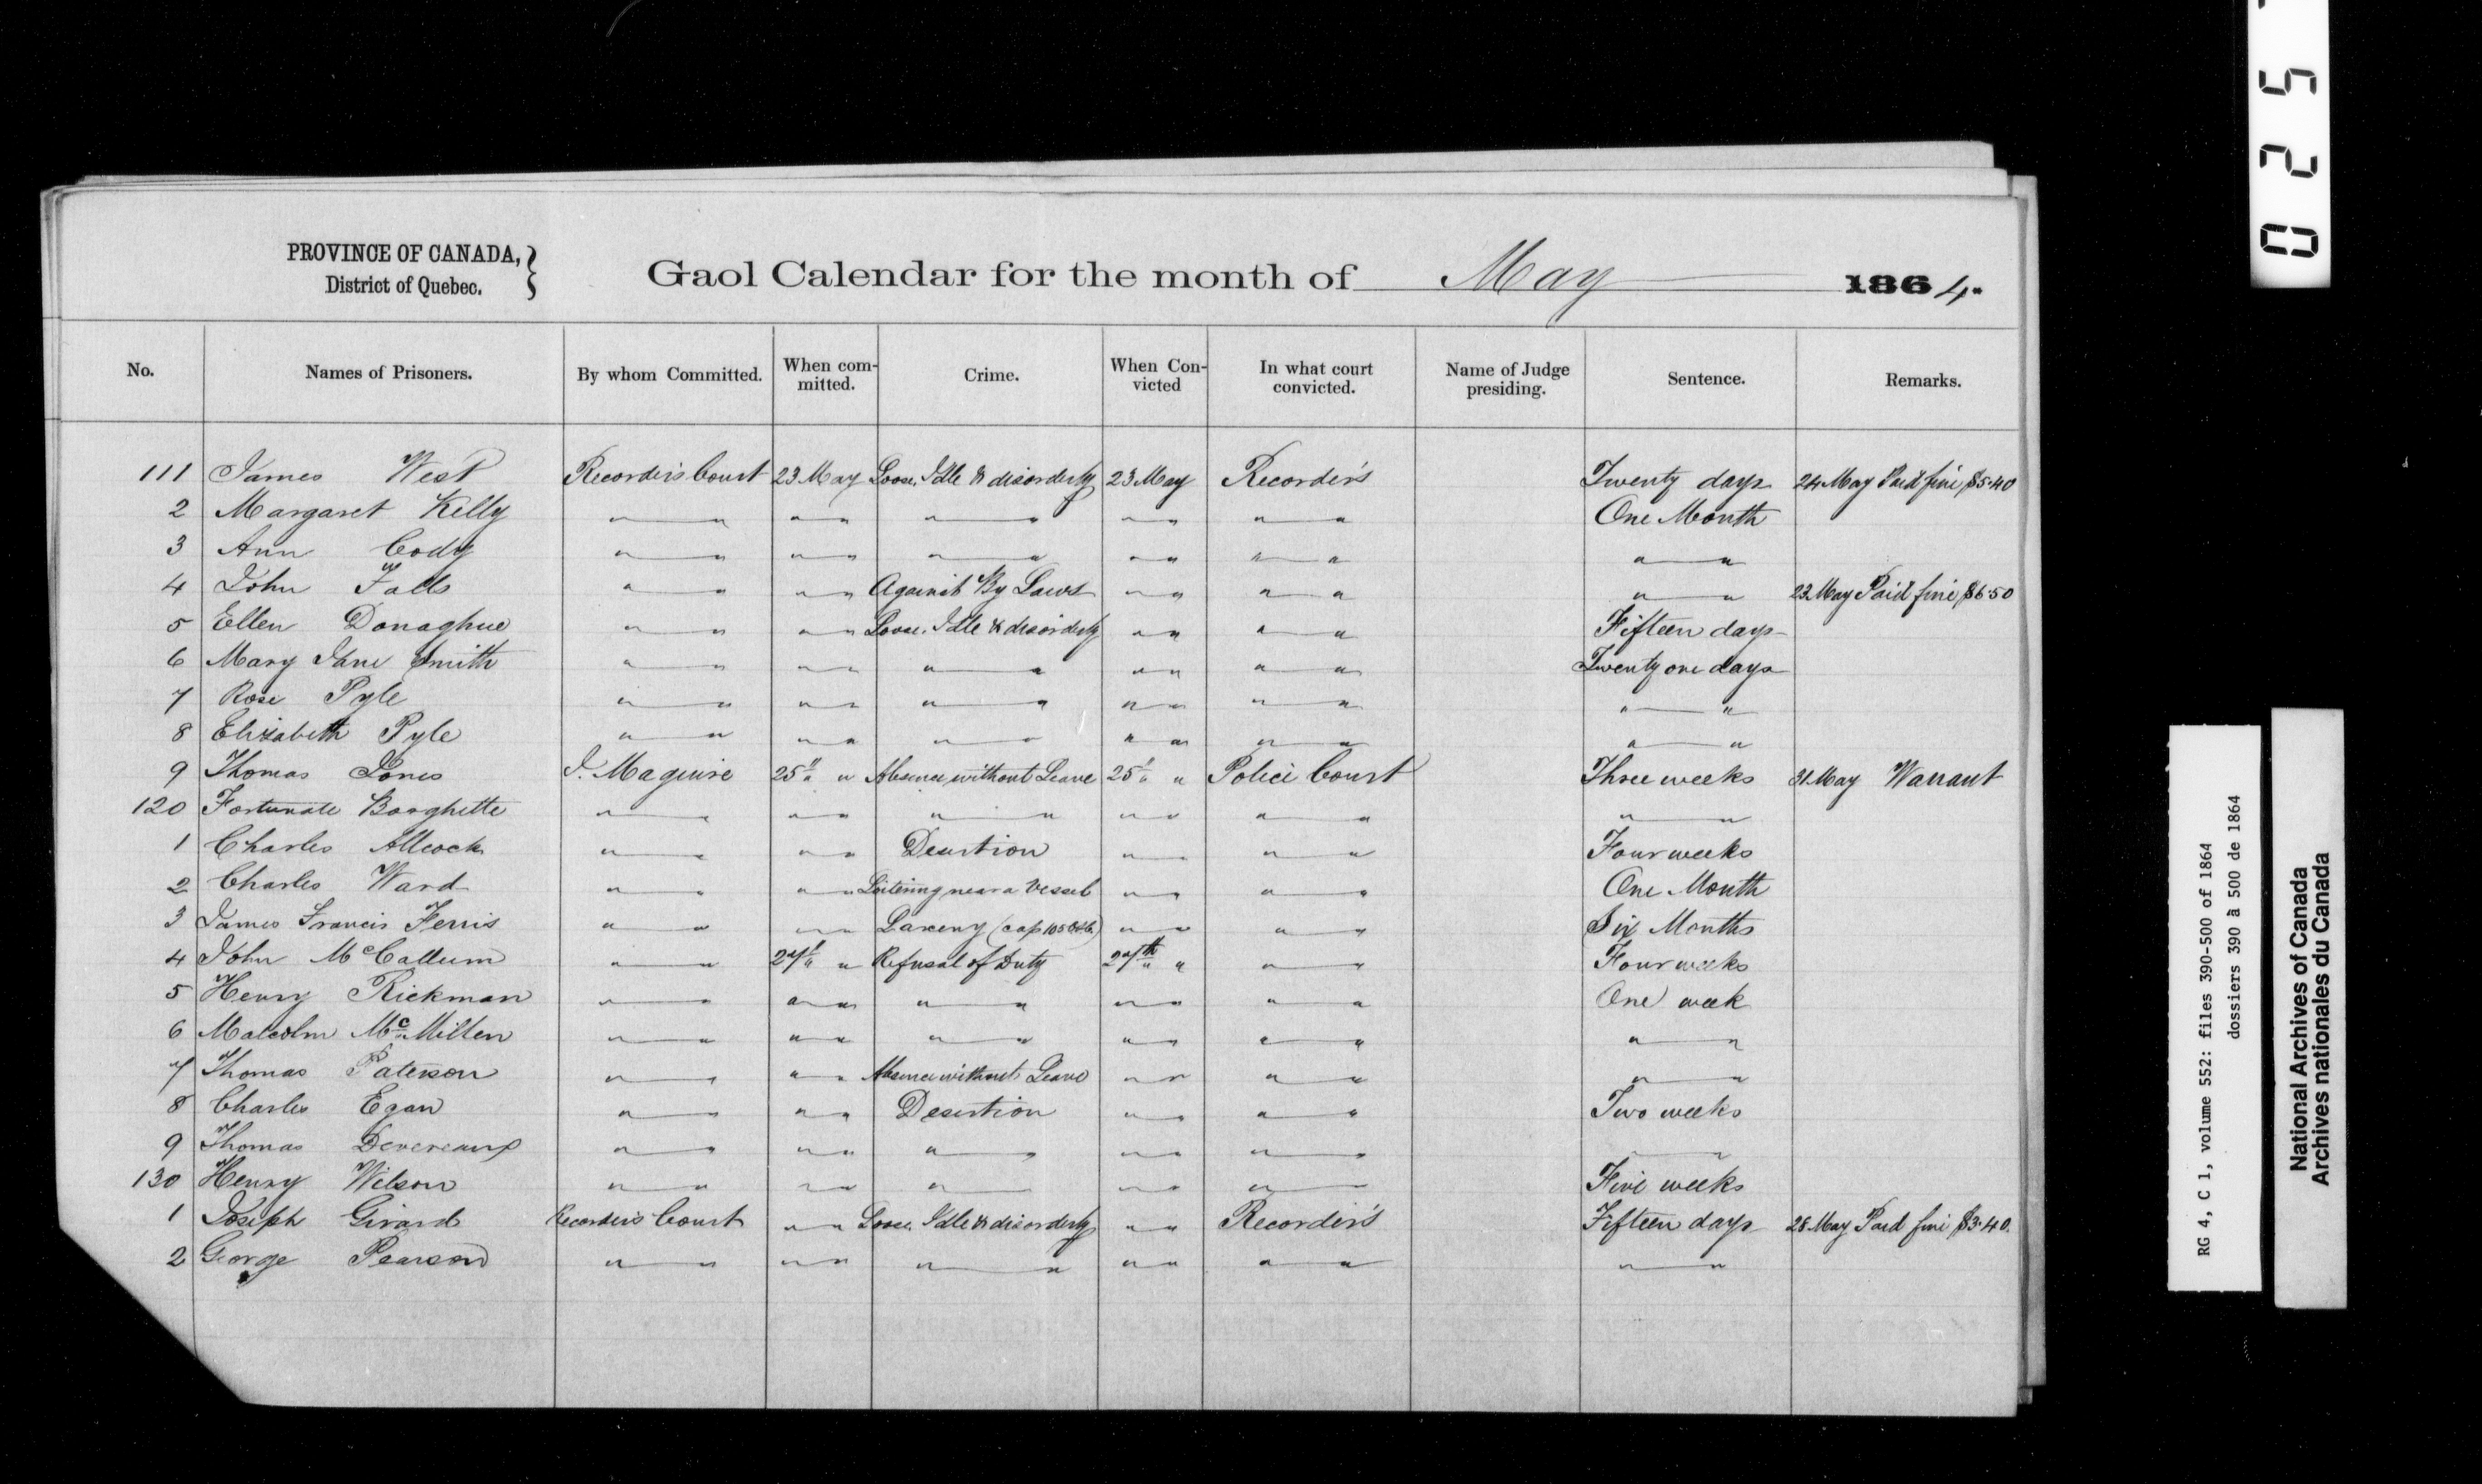 PROVINCE OF CANADA,
District of Quebec.
Gaol Calendar for the month of May 1864.
No. Names of Prisoners. By whom Committed. When committed. Crime. When Convicted In what court convicted. Name of Judge presiding. Sentence. Remarks.
111 James West Recorder's Court 23 May Loose, Idle & disorderly 23 May Recorder's Twenty days 24 May Paid fine $5.40
2 Margaret Kelly " " " " " " " " " " One Month
3 Ann Cody " " " " " " " " " " " "
4 John Falls " " " " Against By Laws " " " " " " 23 May Paid fine $6.50
5 Ellen Donaghue " " " " Loose, Idle & disorderly " " " " Fifteen days
6 Mary Jane Smith " " " " " " " " " " Twenty one days
7 Rose Pyle " " " " " " " " " " " "
8 Elizabeth Pyle " " " " " " " " " " " "
9 Thomas Jones J. Maguire 25 " " Absence without Leave 25 " " Police Court Three weeks 31 May Warrant
120 Fortunate Borghette " " " " " " " " " " " "
1 Charles Allcock " " " " Desertion " " " " Four weeks
2 Charles Ward " " " " Loitering near a Vessel " " " " One Month
3 James Francis Ferris " " " " Larceny (cap 105 " " " " Six Months
4 John McCallum " " 27 " " Refusal of Duty 27th " " " " Four weeks
5 Henry Rickman " " " " " " " " " " One week
6 Malcolm McMillen " " " " " " " " " " " "
7 Thomas Paterson " " " " Absence without Leave " " " " " "
8 Charles Egan " " " " Desertion " " " " Two weeks
9 Thomas Devereaux " " " " " " " " " " " "
130 Henry Wilson " " " " " " " " " " Five weeks
1 Joseph Girard Recorder's Court " " Loose, Idle & disorderly " " Recorder's Fifteen days 28 May Paid fine $3.40.
2 George Pearson " " " " " " " " " " " "
025
RG 4, C 1, volume 552: files 390-500 of 1864
dossiers 390 à 500 de 1864
National Archives of Canada
Archives nationales du Canada